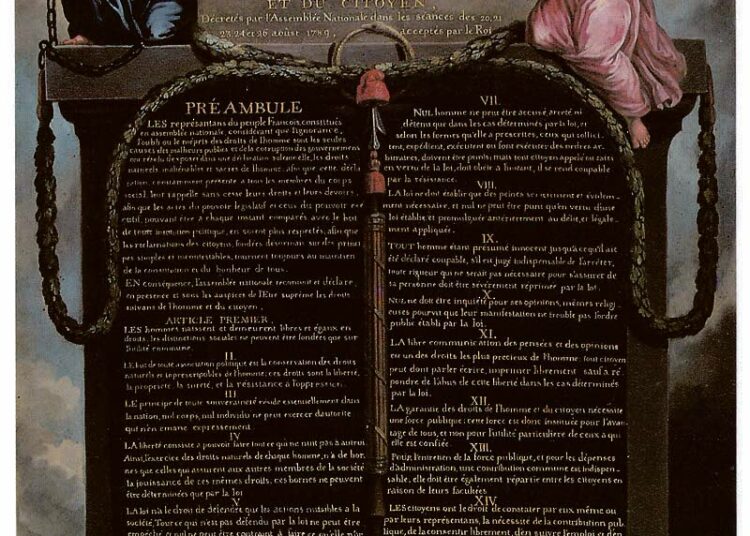 ET DU CITOYEN,
Décretés par l'Assemblée Nationale dans les séances des 20, 21
23, 24 et 26 aoust 1789, acceptés par le Roi
PRÉAMBULE
LES représantans du peuple François, constitués
en assemblée nationale, considérant que l'ignorance,
l'oubli ou le mépris des droits de l'homme sont les seules
causes des malheurs publics et de la corruption des gouvernemens
ont résolu d'exposer dans une déclaration solemnelle, les droits
naturels, inaliénables et sacrés de l'homme; afin que cette décla
ration, constamment présente a tous les membres du corps
social, leur rappelle sans cesse leurs droits et leurs devoirs;
afin que les actes du pouvoir législatif et ceux du pouvoir exé
cutif, pouvant être a chaque instant comparés avec le but
de toute institution politique, en soient plus respectés; afin que
les reclamations des citoyens, fondées désormais sur des princi
pes simples et incontestables, tournent toujours au maintien
de la constitution et du bonheur de tous.
EN conséquence, l'assemblée nationale reconnoit et déclare,
en presence et sous les auspices de l'Etre suprême les droits
suivans de l'homme et du citoyen.
ARTICLE PREMIER.
LES hommes naissent et demeurent libres et égaux en
droits. les distinctions sociales ne peuvent être fondées que sur
l'utilité commune.
II.
LE but de toute association politique est la conservation des droits
naturels et imprescriptibles de l'homme; ces droits sont la liberté,
la propriété, la sureté, et la résistance à l'oppression.
III
LE principe de toute souveraineté réside essentiellement dans
la nation, nul corps, nul individu ne peut exercer d'autorité
qui n'en émane expressement.
IV
LA liberté consiste a pouvoir faire tout ce qui ne nuit pas à autrui
Ainsi, l'exercice des droits naturels de chaque homme, n'a de bor
nes que celles qui assurent aux autres membres de la société
la jouissance de ces mêmes droits; ces bornes ne peuvent
être déterminées que par la loi
V
LA loi n'a le droit de défendre que les actions nuisibles a la
société. Tout ce qui n'est pas défendu par la loi ne peut être
empêché et nul ne peut être contraint à faire ce qu'elle n'or
VII.
NUL homme ne peut être accusé, arreté ni
détenu que dans les cas déterminés par la loi, et
selon les formes qu'elle a prescrites, ceux qui sollici
tent, expédient, exécutent ou font exécuter des ordres ar
bitraires, doivent être punis; mais tout citoyen appelé ou saisi
en vertu de la loi, doit obéir a l'instant, il se rend coupable
par la résistance.
VIII.
LA loi ne doit établir que des peines strictement et évidem
ment nécessaire, et nul ne peut être puni qu'en vertu d'une
loi établie et promulguée antérierement au délit, et légale
ment appliquée.
IX.
TOUT homme étant présumé innocent jusqu'a ce qu'il ait
été déclaré coupable, s'il est jugé indispensable de l'arrêter,
toute rigueur qui ne serait pas nécessaire pour s'assurer de
sa personne doit être sévèrement réprimée par la loi.
X.
NUL ne doit être inquiété pour ses opinions, mêmes religi
euses pourvu que leur manifestation ne trouble pas l'ordre
public établi par la loi.
XI.
LA libre communication des pensées et des opinions
est un des droits les plus precieux de l'homme: tout citoyen
peut dont parler écrire, imprimer librement sauf a ré
pondre de l'abus de cette liberté dans les cas déterminés
par la loi.
XII.
LA garantie des droits de l'homme et du citoyen nécessite
une force publique: cette force est donc instituée pour l'avan
tage de tous, et non pour l'utilité particuliere de ceux a qui
elle est confiée.
XIII.
Pour l'entretien de la force publique, et pour les dépenses
d'administration, une contribution commune est indispen
sable, elle doit être également répartie entre les citoyens en
raison de leurs facultées
XIV.
LES citoyens ont le droit de constater par eux même ou
par leurs représentans, la nécessité de la contribution pub
lique, de la consentir librement, d'en suivre l'emploi et d'en